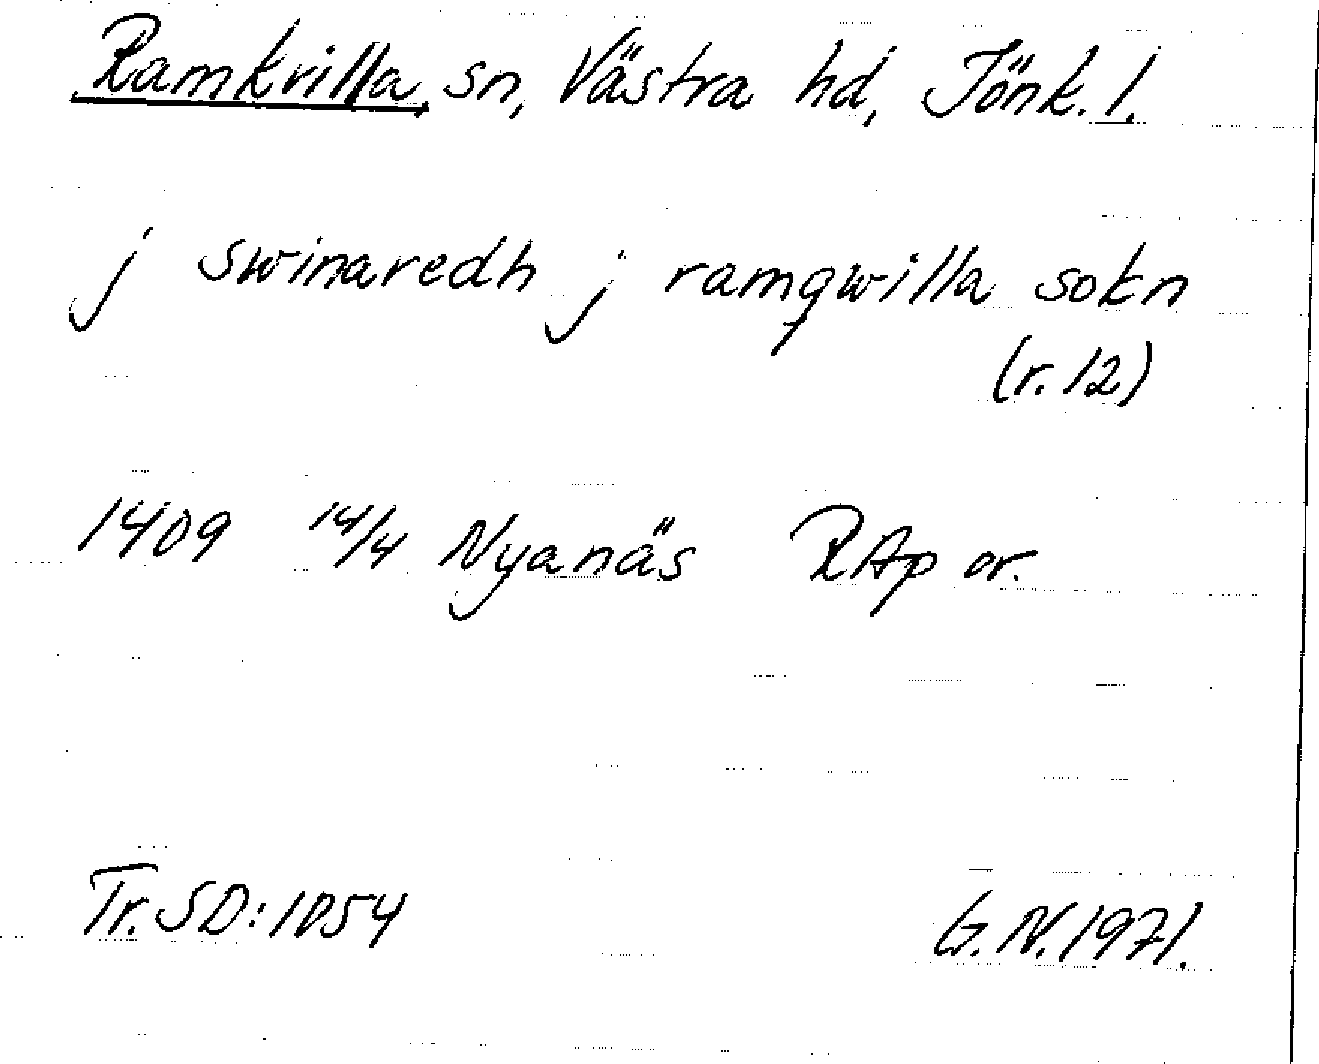 Ramkvilla, sn, Västra hd, Jönk. l.
j swinaredh j ramqwilla sokn
(r. 12)
1409 14/4 Nyanäs RAp or.
Tr. SD: 1054 G. N. 1971.